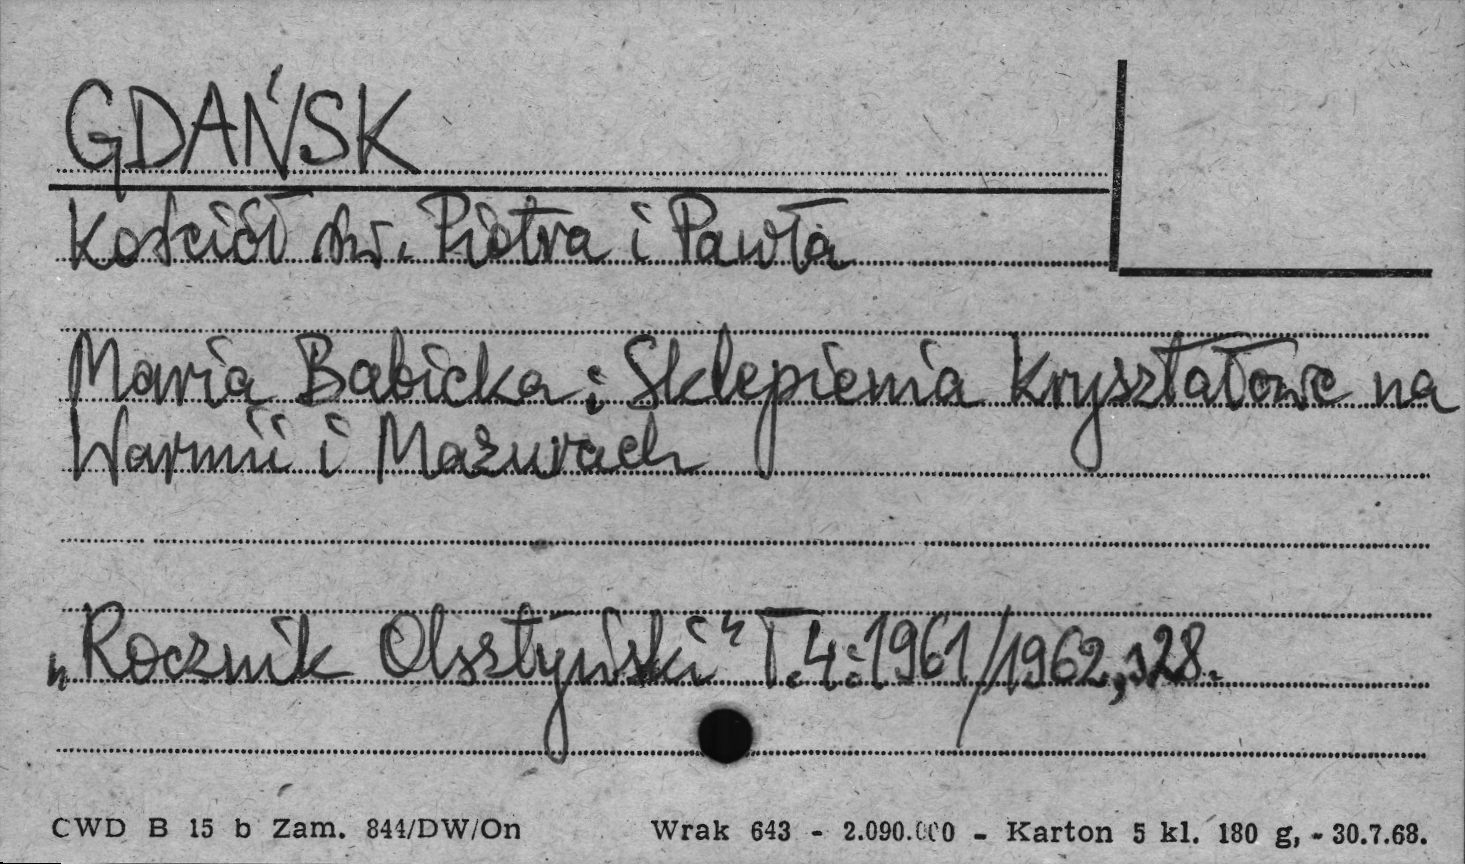 GDAŃSK
Kościół św. Piotra i Pawła
Maria Babicka: Sklepienia Kryształowe na
Warmii i Mazurach
„Rocznik Olsztyński" T.4:1961/1962, s28.
CWD B 15 b Zam. 844/DW/On Wrak 643 - 2.090.000 - Karton 5 kl. 180 g, - 30.7.68.